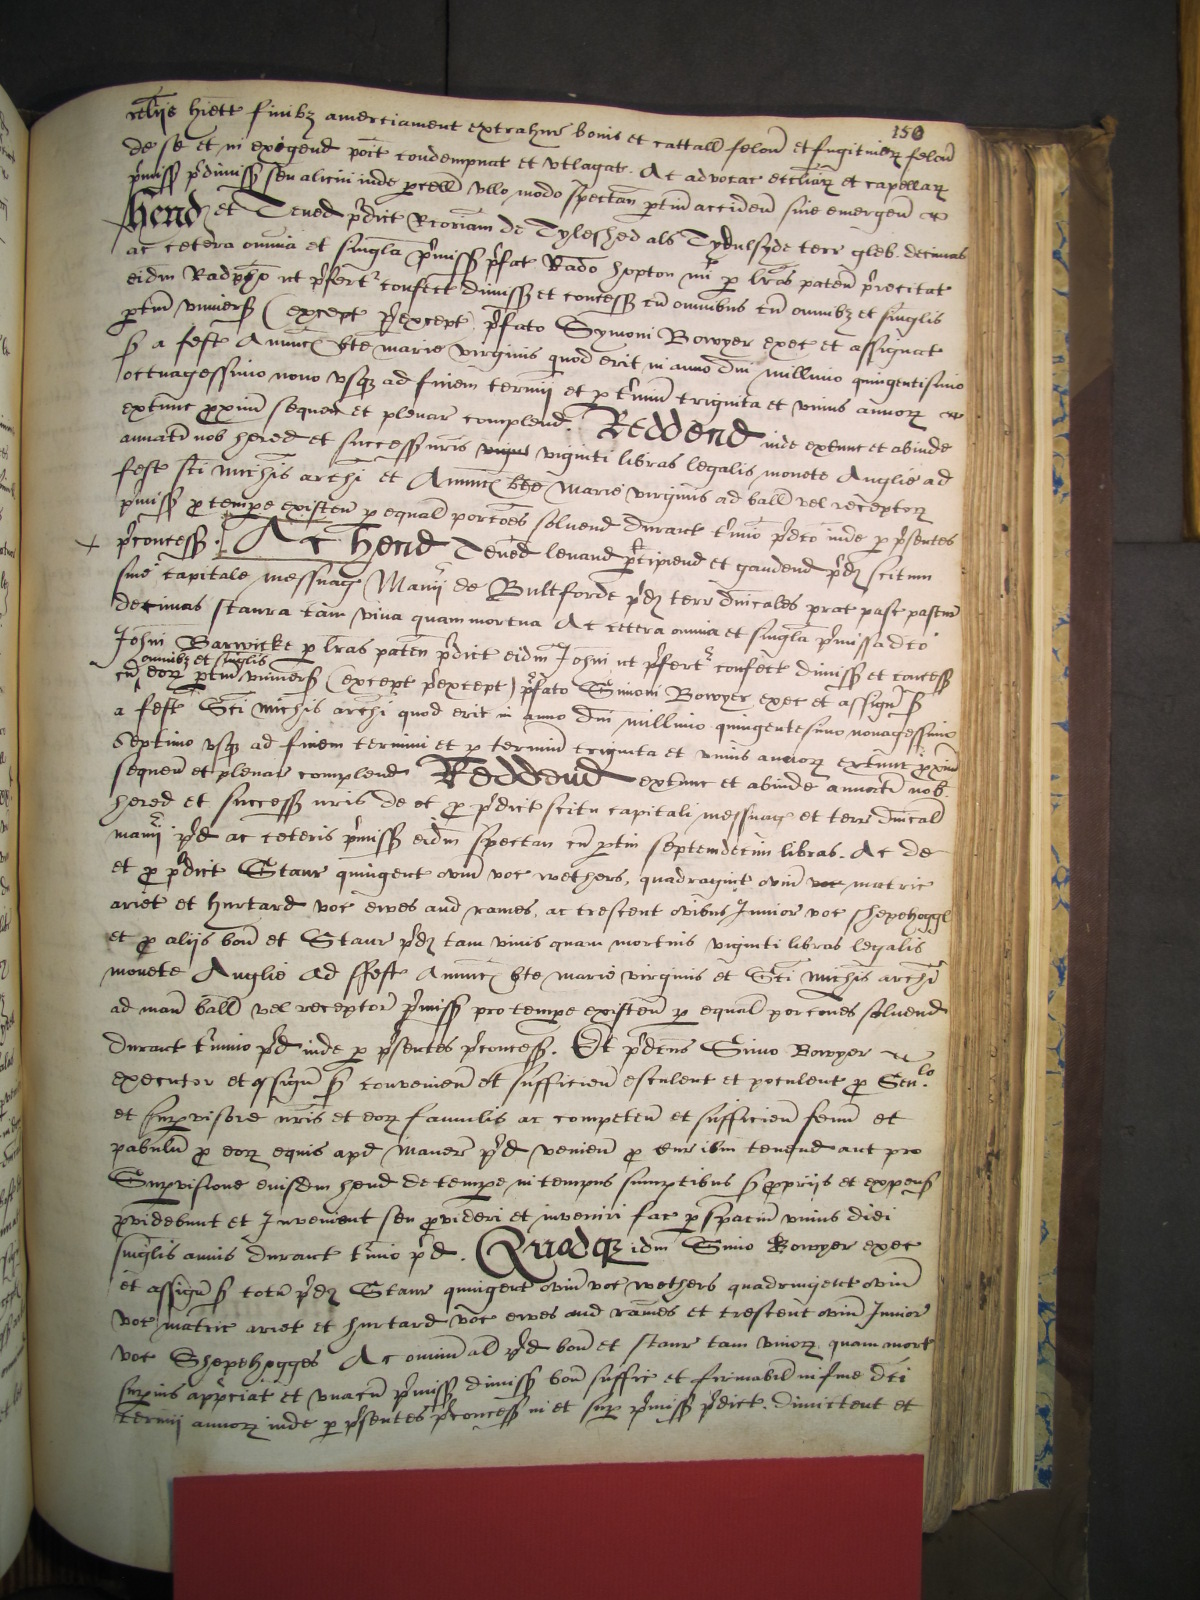 150
reliijs heriett finibz amerciament extrahur bonis et cattall felon et fugitiuorz felon
de se et in exigend posit condempnat et vtlagat. Ac advocac eccliarz et capellarz
pmiss pdimiss seu alicui inde pcell vllo modo spectan ptin acciden siue emergen
Hend et Tened pdict Rcoriam de Tyleshed als Tydulsyde terr gleb. decimas
ac cetera omnia et singla pmiss pfat Rado hopton mi p lras paten precitat
eidm Radpho ut pfert confect dimiss et concess cu omnibus cu omnibz et singlis
ptin vniuers (except pexcept pfato Symoni Bowyer exec et assignat
s a fest Annuc bte marie virginis quod erit in anno dni millimo quingentisimo
octuagessimo nono vsqz ad finem termij et p tminu triginta et vnius annorz
extunc proxim sequen et plenar complend. Reddend inde extunc et abinde
annuati nob hered et success nris viginti libras legalis monete Anglie ad
fest sci Michis archi et Annuc bte Marie virginis ad ball vel receptorz
pmiss pro tempe existen p equal porcoes soluend durant tmio pdco inde p psentes
pconcess. Ac Hend Tened leuand pcipiend et gaudend pdz scitum
siue capitale messuag Manij de Bultforde pdz terr dnicales prat past pastur
decimas staura tam viua quam mortua Ac cetera omnia et singla pmissa dco
Johni Barwicke p lras paten pdict eidm Johni ut pfert confect dimiss et concess
omnibz et singlis
cu eorz ptin vniuers (except pexcept) pfato Simoni Bowyer exec et assign s
a fest Sci Michis archi quod erit in anno dni millimo quingentesimo nonagessimo
septimo vsqz ad finem termini et p terminu triginta et vnius annorz extunc proxim
sequen et plenar complend Reddend extunc et abinde annuati nob
hered et success nris de et pro pdict scitu capitali messuag et terr dnical
manij pd ac ceteris pmiss eidm spectan cu ptin septemdecim libras. Ac de
et pro pdict Staur quingent ouiu voc wethers, quadragint ouiu voc matric
ariet et hurtard voc ewes and rames, ac trescent ovibus Junior voc shepehoggs
et pro alijs bon et Staur pdz tam viuis quam mortuis viginti libras legalis
monete Anglie ad ffest Annuc bte marie virginis et Sci Michis archi
ad man ball vel receptor pmiss pro tempe existen p equal porcones soluend
durant tmino pd inde p psentes pconcess. Et pdcus Simo Bowyer
executor et assign s convenien et sufficien esculent et poculent pro Senlo
et supvisore nris et eorz famulis ac competen et sufficien fenu et
pabulu pro eorz equis apd maner pd venien pro cur ibm tenend aut pro
Supvisione eiusdm hend de tempe in tempus sumptibus s proprijs et expens
providebunt et Invenient seu provideri et inveniri fac p spaciu vnius diei
singlis annis durant tmio pd. Quodqz idm Simo Bowyer exec
et assign s totu pdz Staur quingent ouiu voc wethers quadringent ouiu
voc matric ariet et hurtard voc ewes and rames et trescent ouiu Junior
voc Shepehogges Ac omniu al pd bon et staur tam viuorz quam mort
supius appciat et vnacu pmiss dimiss bon suffic et firmabil in fine dci
termij annorz inde p psentes pconcess in et sup pmiss pdict. dimictent et